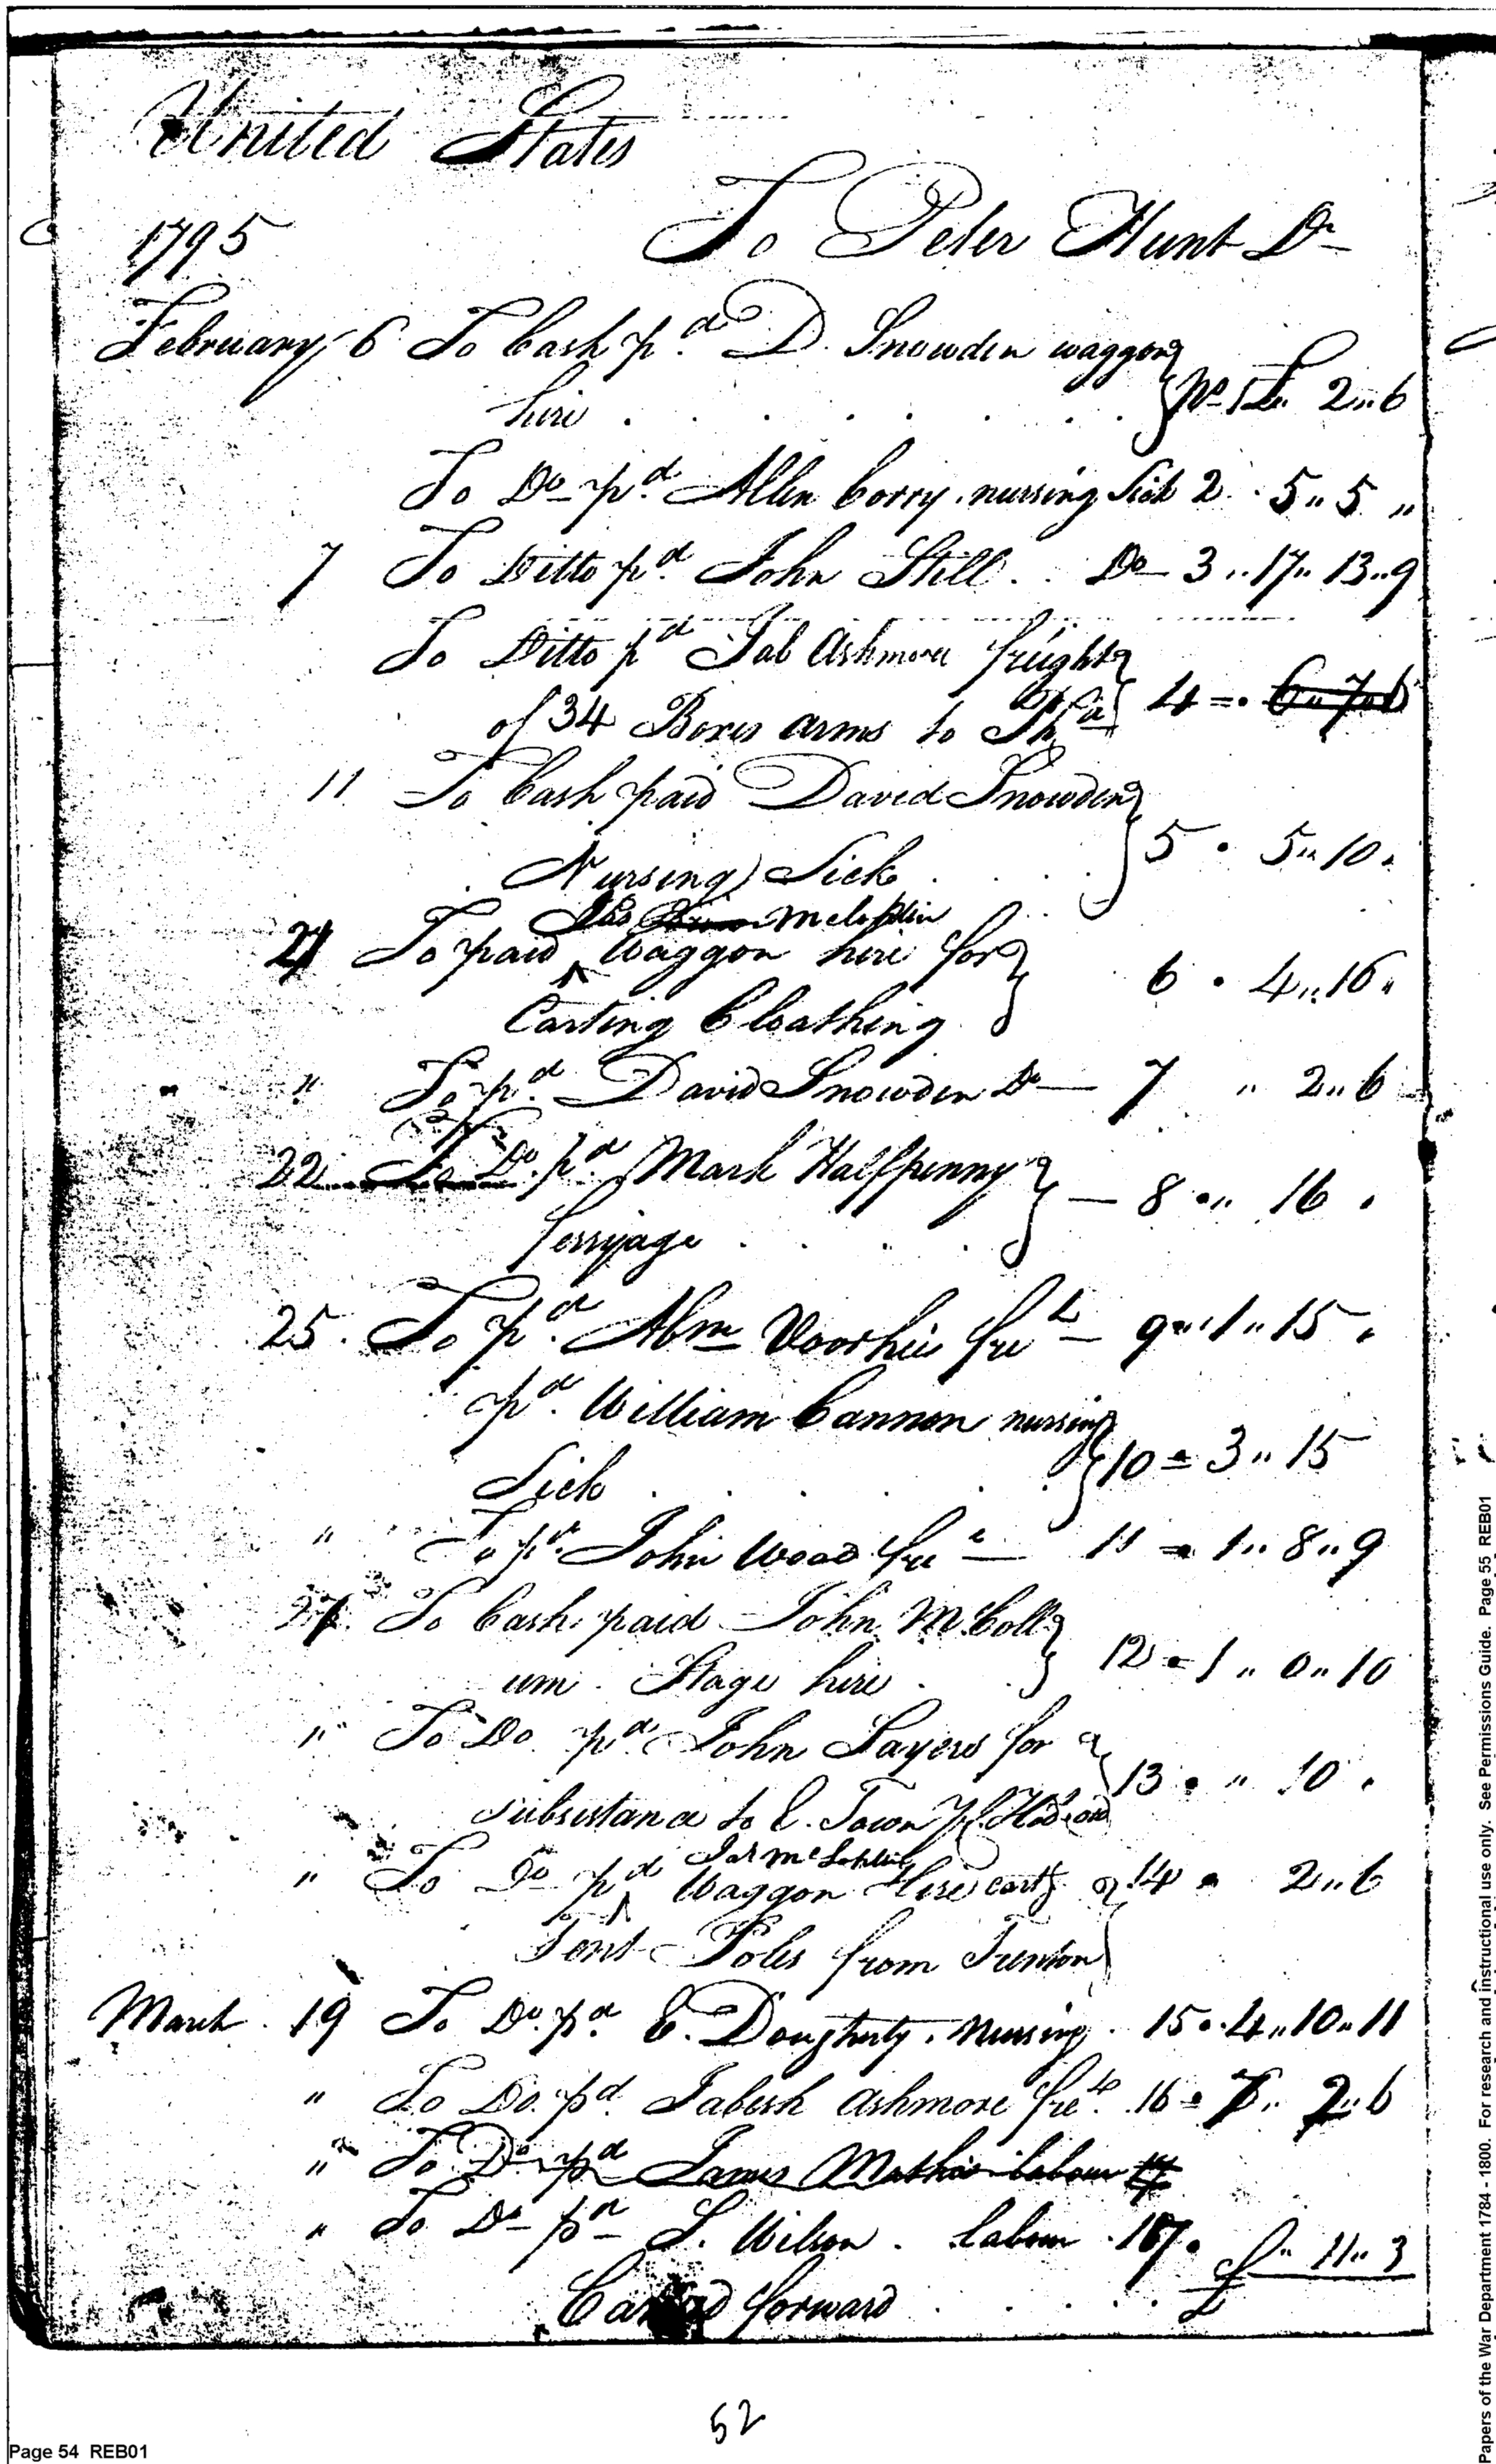 United States
1795 To Peter Hunt Dr
February 6 To Cash pd. D. Snowden waggon
hire . . . . . . . No 1 £" 2"6
To Do pd. Allen Corry nursing Sick 2 . 5"5"
7 To Ditto pd. John Still . . Do 3 " 17" 13"9
To Ditto pd Jab Ashmore freight
of 34 Boxes arms to Pha 4 = . 6"7"6
11 To Cash paid David Snowden
Nursing Sick . . . 5 . 5"10"
Jas McLofflin
21 To paid Waggon hire for
Carting Cloathing 6 . 4"16"
" To pd. David Snowden Do 7 " 2"6
22 To Do. pd. Mark Halfpenny
ferryage . . . . — 8 " 16 .
25. To pd. Abm Voorhies fret 9 " 1"15"
pd. William Cannon nursing
Sick . . . . . . 10 = 3"15
" To pd. John Wood fret — 11 = 1"8"9
27. To Cash paid John McColl
um . Stage hire . . 12 = 1"0"10
" To Do. pd. John Sayers for
subsistance to E. Town 13 . " 10 .
Jas McLofflin
" To Do pd Waggon Hire cartg 14 = 2"6
Tent Poles from Trenton
March 19 To Do. pd. E. Dougherty. nursing. 15 . 4"10"11
" To Do. pd. Jabesh Ashmore fret. 16 = 7" 2"6
" To Do pd James Mathis labour 17
" To Do pd S. Wilson . labour . 17 . " 11"3
Carried forward . . . . . £
52
Page 54 REB01
Papers of the War Department 1784 - 1800. For research and instructional use only. See Permissions Guide. Page 55 REB01